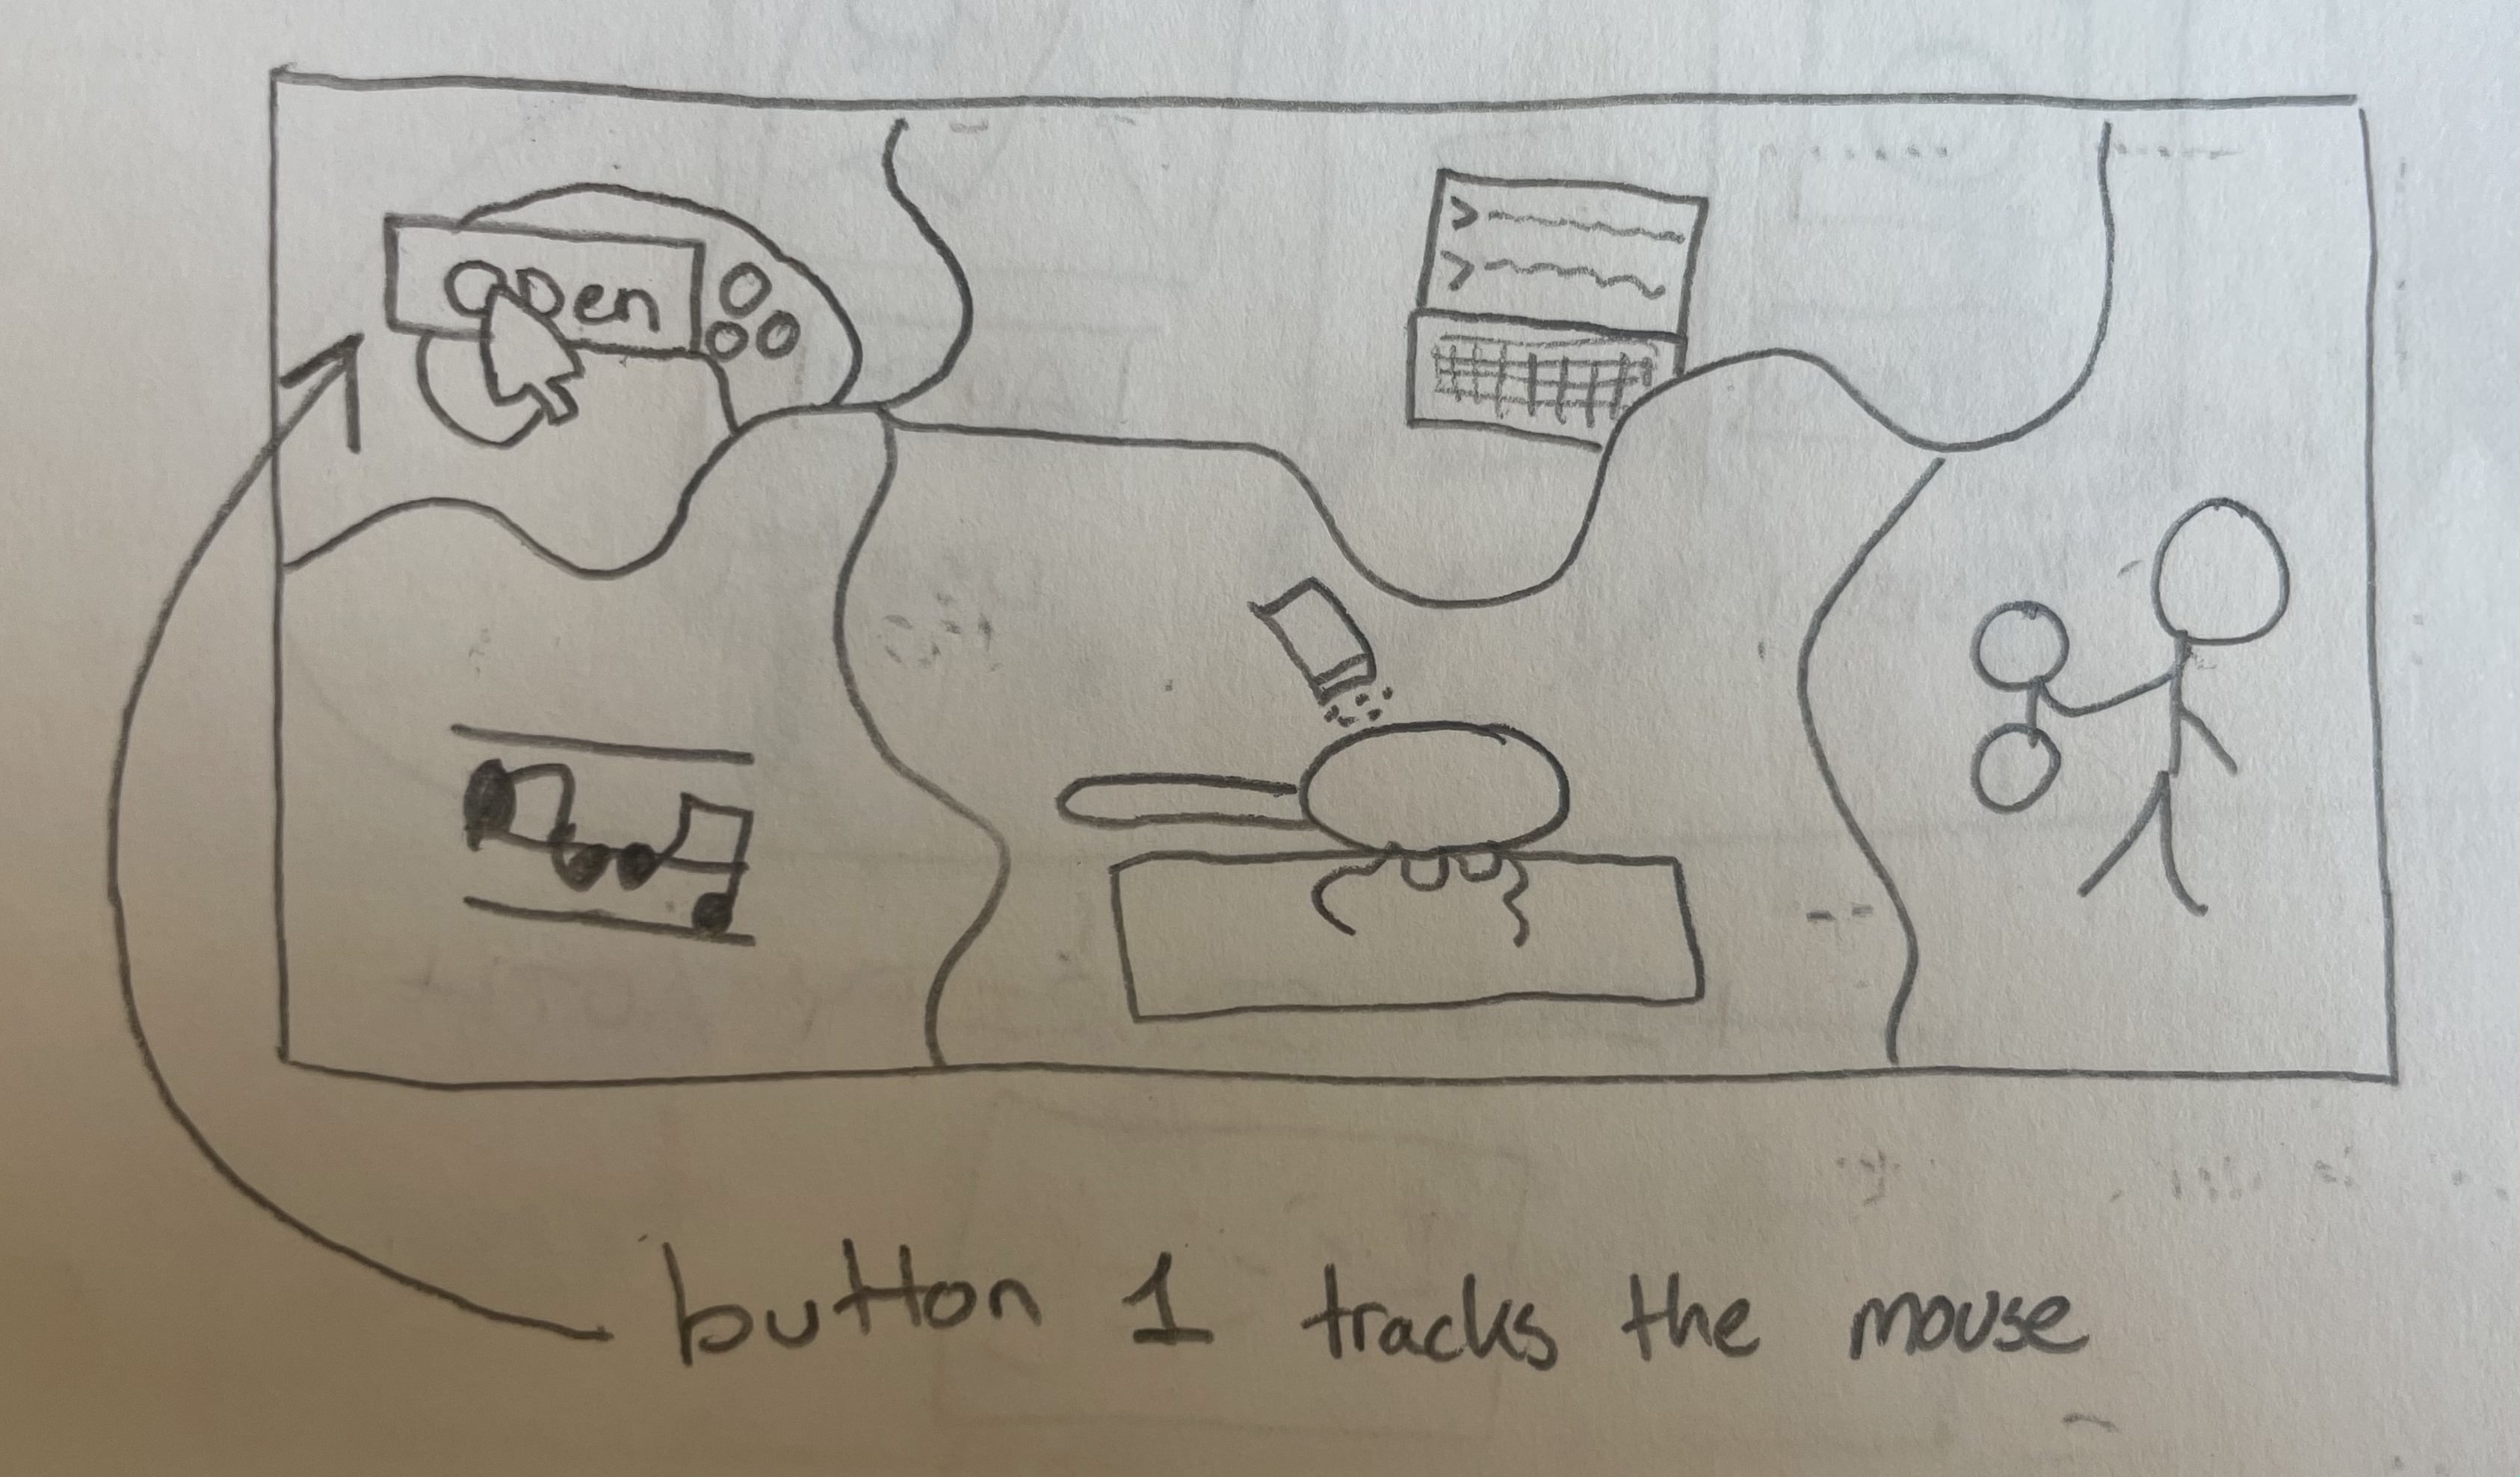 open
button 1 tracks the mouse